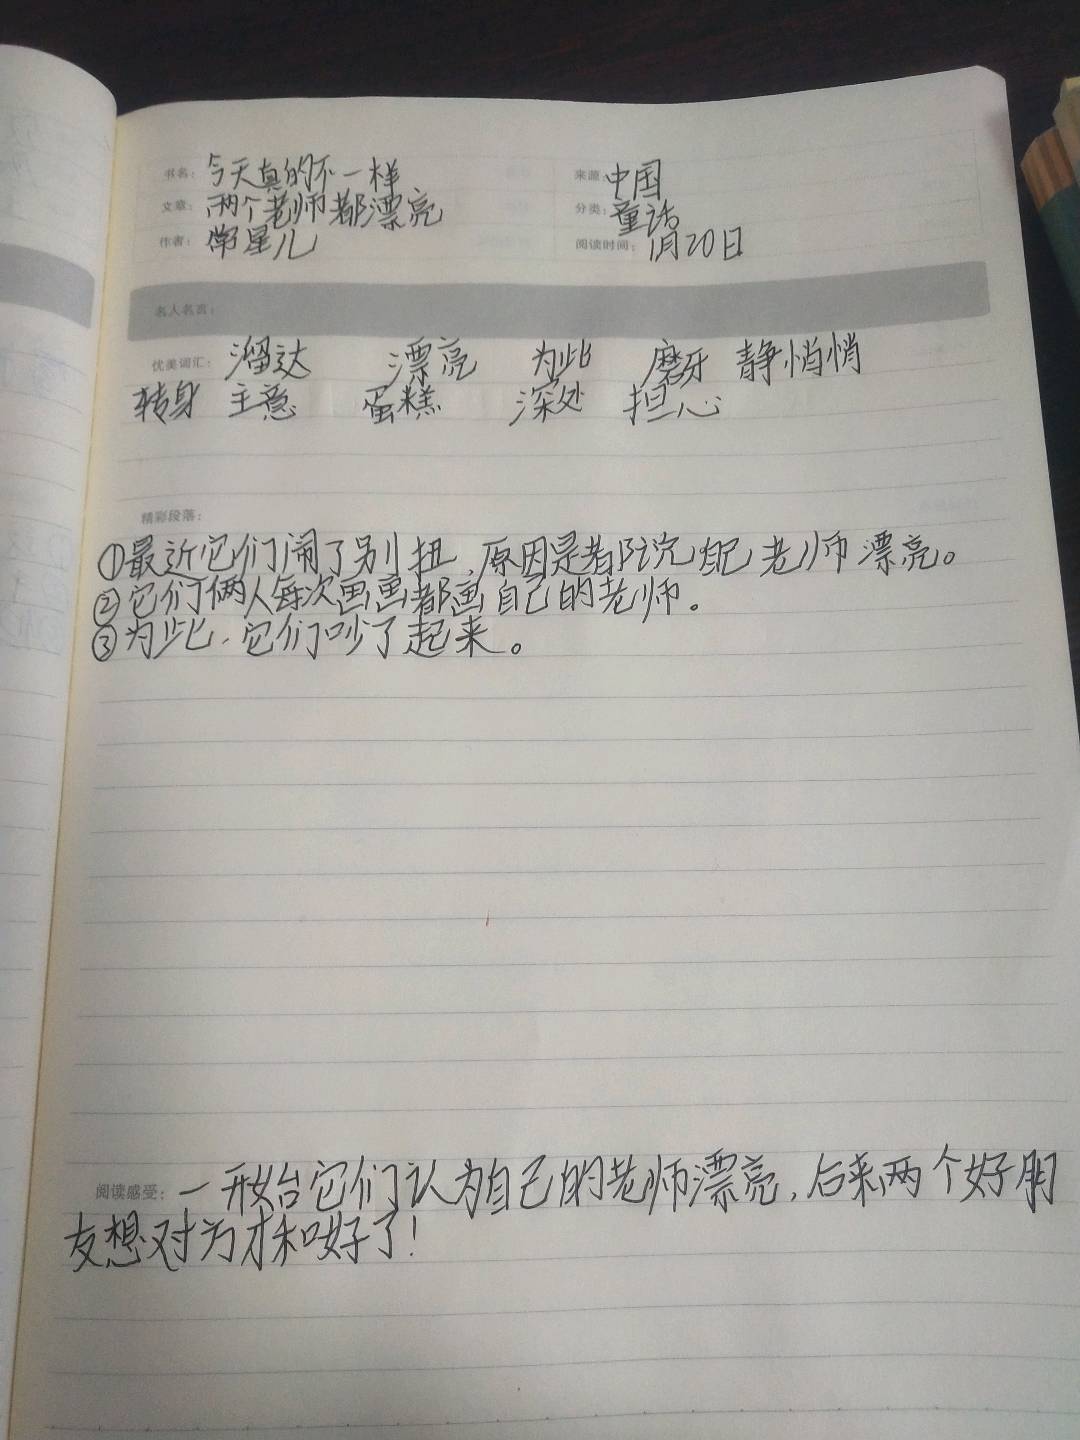 书名：今天真的不一样 来源：中国
文章：两个老师都漂亮 分类：童话
作者：常星儿 阅读时间：1月20日
名人名言：
优美词汇：溜达 漂亮 为此 磨牙 静悄悄
转身 主意 蛋糕 深处 担心
精彩段落：
①最近它们闹了别扭，原因是都说自己老师漂亮。
②它们俩人每次画画都画自己的老师。
③为此，它们吵了起来。
阅读感受：一开始它们认为自己的老师漂亮，后来两个好朋
友想对方才和好了！